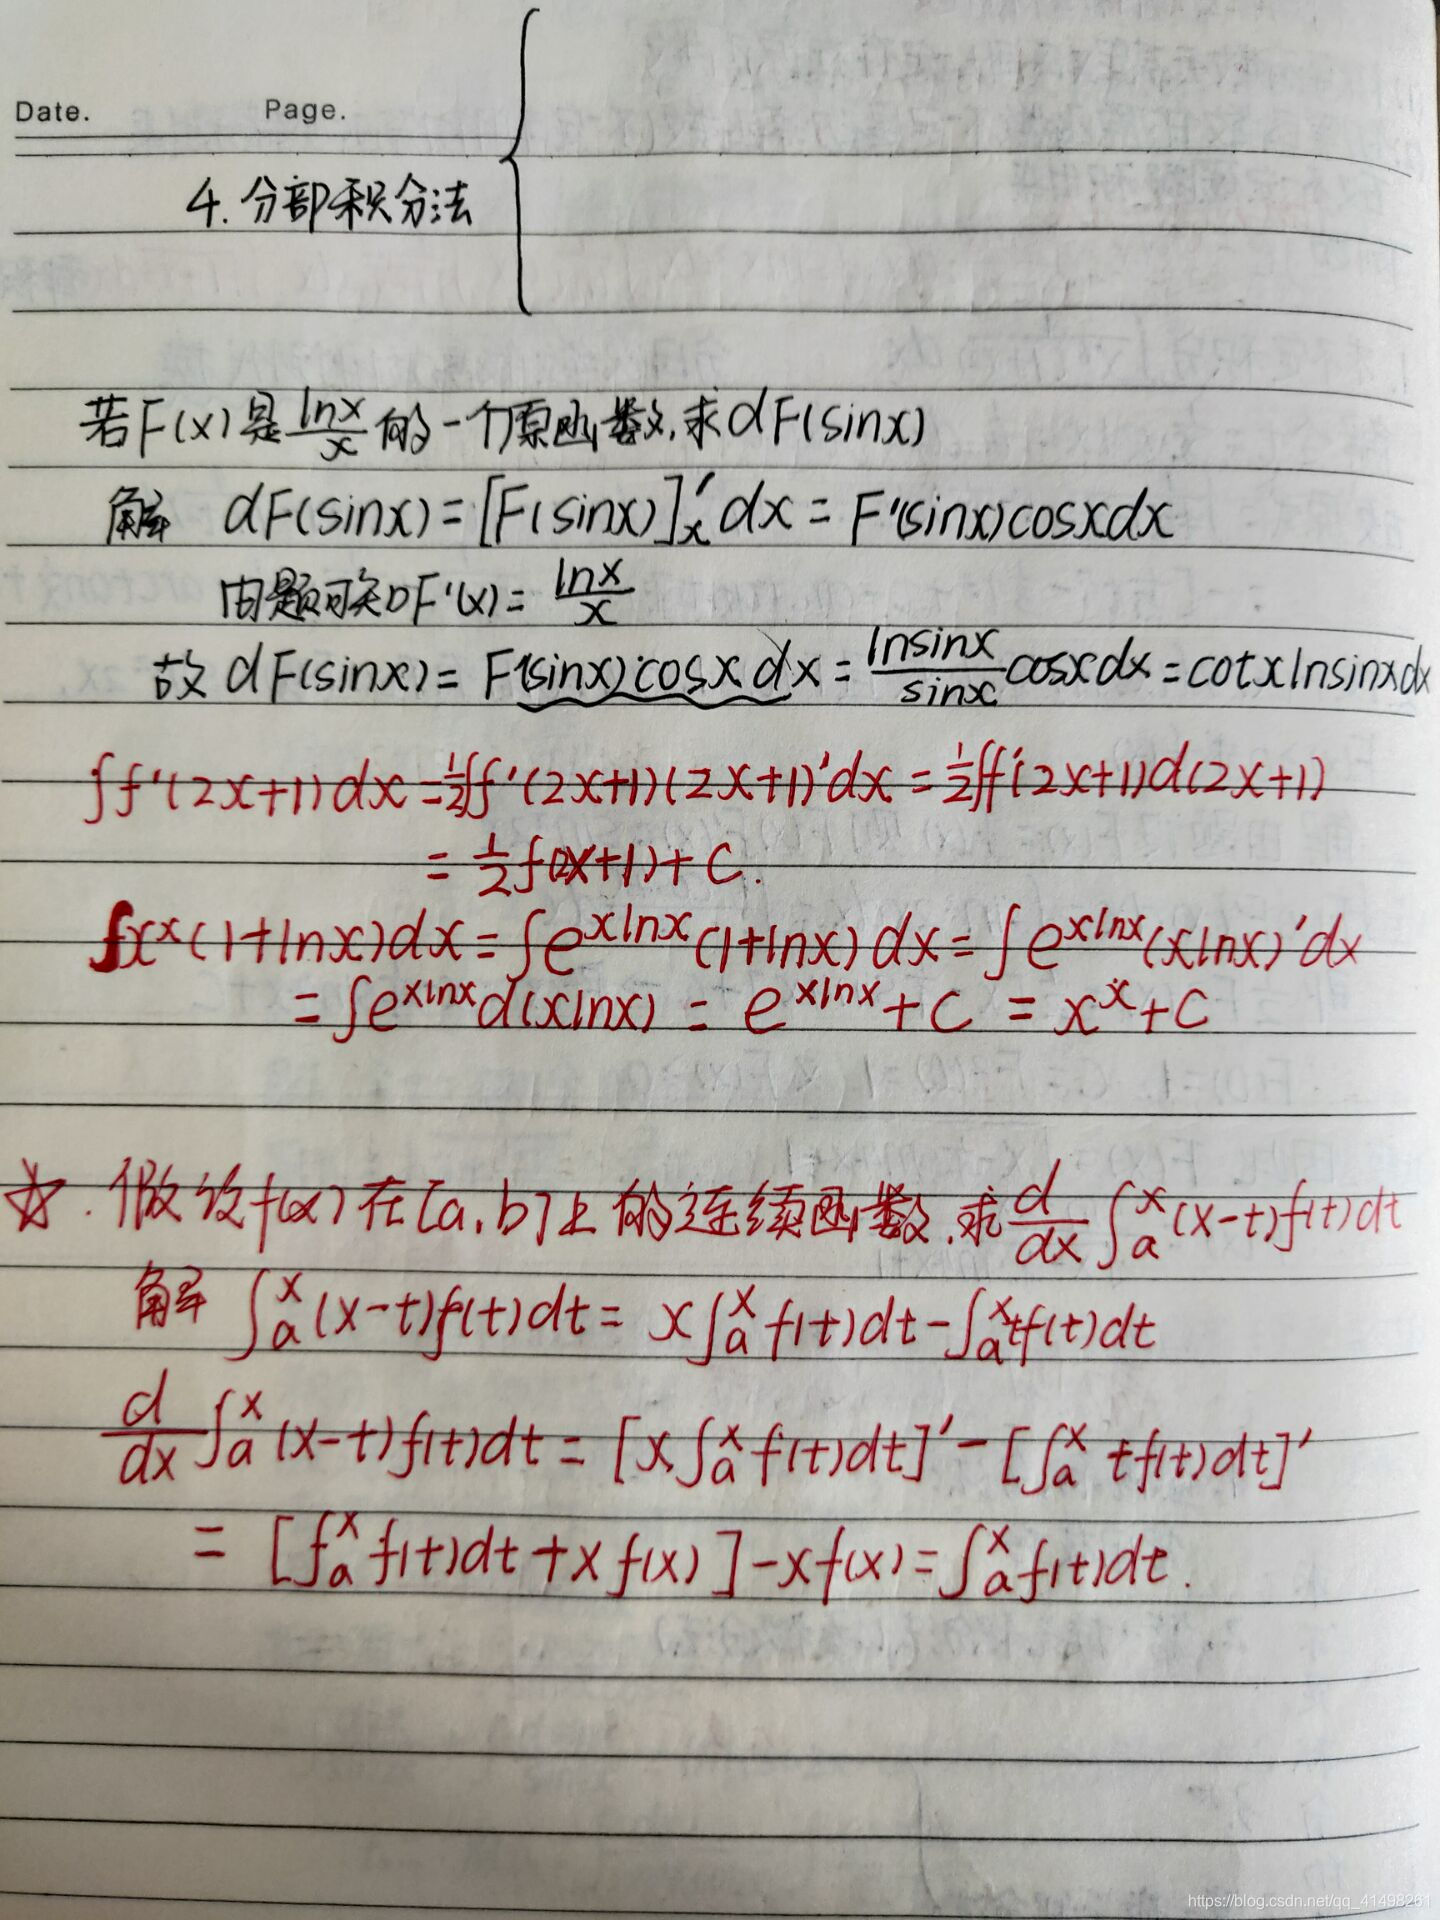 Date. Page.
4. 分部积分法
若F(x)是 lnx/x 的一个原函数,求dF(sinx)
解 dF(sinx)=[F(sinx)]'ₓdx=F'(sinx)cosxdx
由题可知F'(x)=lnx/x
故dF(sinx)=F'(sinx)·cosxdx=lnsinx/sinx cosxdx=cotxlnsinxdx
∫f'(2x+1)dx=½∫f'(2x+1)(2x+1)'dx=½∫f'(2x+1)d(2x+1)
=½f(2x+1)+C.
∫xˣ(1+lnx)dx=∫e^{xlnx}(1+lnx)dx=∫e^{xlnx}(xlnx)'dx
=∫e^{xlnx}d(xlnx)=e^{xlnx}+C=xˣ+C
☆.假设f(x)在[a,b]上的连续函数,求d/dx∫ₐˣ(x-t)f(t)dt
解 ∫ₐˣ(x-t)f(t)dt=x∫ₐˣf(t)dt-∫ₐˣtf(t)dt
d/dx∫ₐˣ(x-t)f(t)dt=[x∫ₐˣf(t)dt]'-[∫ₐˣtf(t)dt]'
=[∫ₐˣf(t)dt+xf(x)]-xf(x)=∫ₐˣf(t)dt.
https://blog.csdn.net/qq_41498261